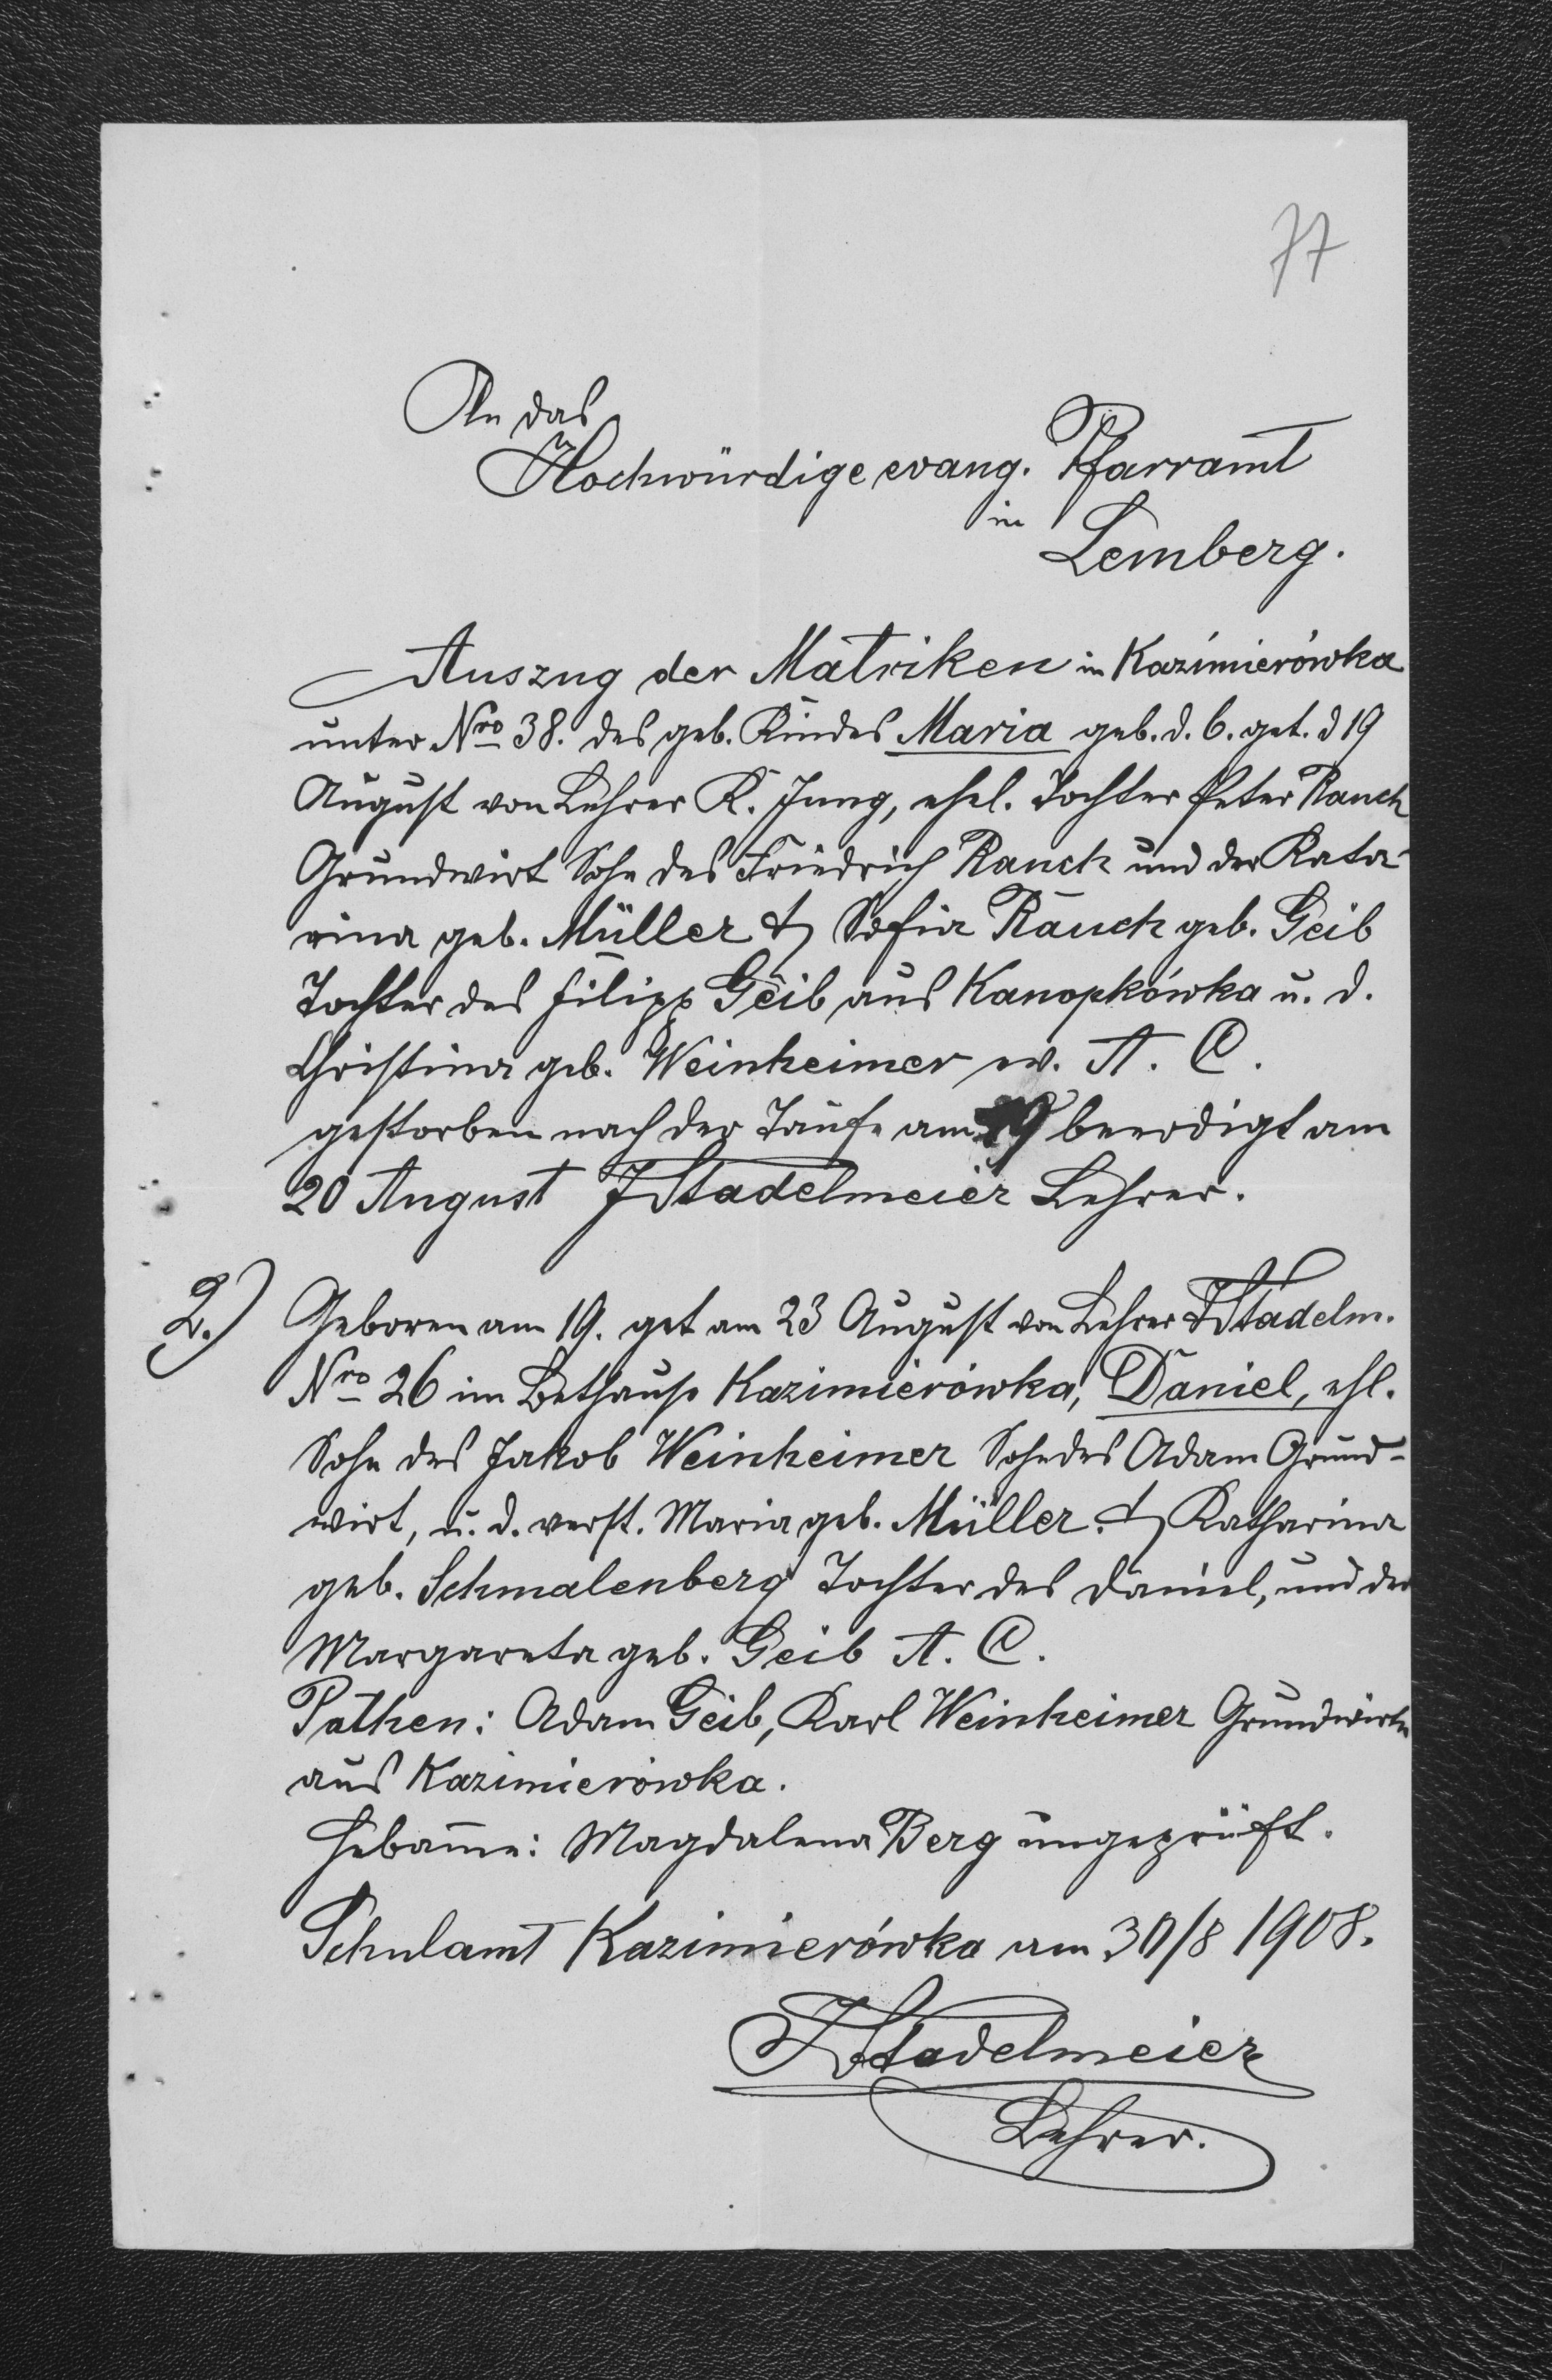 77
An das
Hochwürdige evang. Pfarramt
in
Lemberg.
Auszug der Matriken in Kazimierówka
unter Nro 38. des geb. Kindes Maria geb. d. 6. get. d 19
August von Lehrer K. Jung, ehel. Tochter Peter Rauch
Grundwirt Sohn des Friedrich Rauch und der Kata-
rina geb. Müller & Sofia Rauch geb. Geib
Tochter des Filipp Geib aus Kanopkówka u. d.
Christina geb. Weinheimer ev. A. C.
gestorben nach der Taufe am 19 beerdigt am
20 August JStadelmeier Lehrer.
2.) Geboren am 19. get am 23 August von Lehrer JStadelm.
Nro 26 im Bethause Kazimierówka, Daniel, ehl.
Sohn des Jakob Weinheimer Sohn des Adam Grund-
wirt, u. d. verst. Maria geb. Müller. & Katharina
geb. Schmalenberg Tochter des Daniel, und der
Margareta geb. Geib A. C.
Pathen: Adam Geib, Karl Weinheimer Grundwirte
aus Kazimierówka.
Hebamme: Magdalena Berg ungeprüft.
Schulamt Kazimierówka am 30/8 1908.
JStadelmeier
Lehrer.